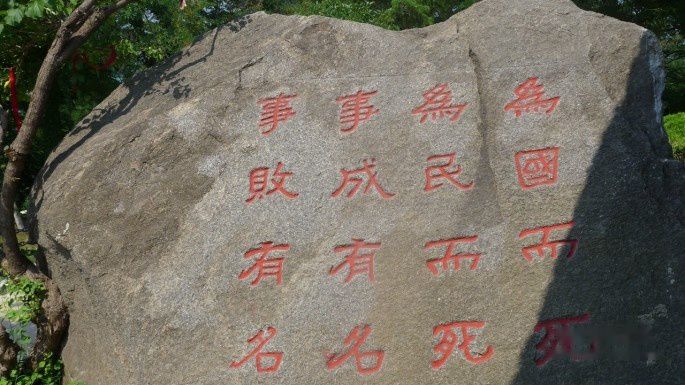 為國而死
為民而死
事成有名
事敗有名